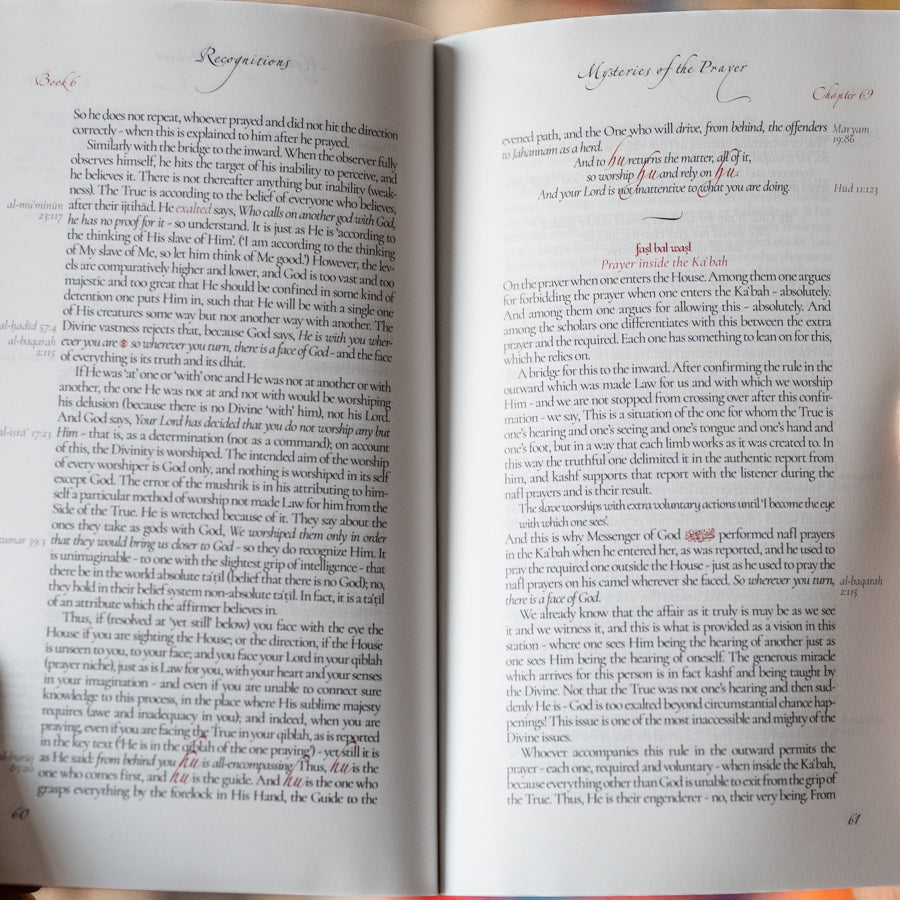 Recognitions
Book 6
So he does not repeat, whoever prayed and did not hit the direction
correctly - when this is explained to him after he prayed.
Similarly with the bridge to the inward. When the observer fully
observes himself, he hits the target of his inability to perceive, and
he believes it. There is not thereafter anything but inability (weak-
ness). The True is according to the belief of everyone who believes,
al-mu'minūn 23:117
after their ijtihād. He exalted says, Who calls on another god with God,
he has no proof for it - so understand. It is just as He is 'according to
the thinking of His slave of Him'. ('I am according to the thinking
of My slave of Me, so let him think of Me good.') However, the lev-
els are comparatively higher and lower, and God is too vast and too
majestic and too great that He should be confined in some kind of
detention one puts Him in, such that He will be with a single one
of His creatures some way but not another way with another. The
al-ḥadīd 57:4
Divine vastness rejects that, because God says, He is with you wher-
al-baqarah 2:115
ever you are so wherever you turn, there is a face of God - and the face
of everything is its truth and its dhāt.
If He was 'at' one or 'with' one and He was not at another or with
another, the one He was not at and not with would be worshiping
his delusion (because there is no Divine 'with' him), not his Lord.
And God says, Your Lord has decided that you do not worship any but
al-isrā' 17:23
Him - that is, as a determination (not as a command); on account
of this, the Divinity is worshiped. The intended aim of the worship
of every worshiper is God only, and nothing is worshiped in its self
except God. The error of the mushrik is in his attributing to him-
self a particular method of worship not made Law for him from the
Side of the True. He is wretched because of it. They say about the
ones they take as gods with God, We worshiped them only in order
zumar 39:3
that they would bring us closer to God - so they do recognize Him. It
is unimaginable - to one with the slightest grip of intelligence - that
there be in the world absolute ta'ṭīl (belief that there is no God); no,
they hold in their belief system non-absolute ta'ṭīl. In fact, it is a ta'ṭīl
of an attribute which the affirmer believes in.
Thus, if (resolved at 'yet still' below) you face with the eye the
House if you are sighting the House; or the direction, if the House
is unseen to you, to your face; and you face your Lord in your qiblah
(prayer niche), just as is Law for you, with your heart and your senses
in your imagination - and even if you are unable to connect sure
knowledge to this process, in the place where His sublime majesty
requires (awe and inadequacy in you); and indeed, when you are
praying, even if you are facing the True in your qiblah, as is reported
in the key text ('He is in the qiblah of the one praying') - yet still it is
al-burūj
as He said: from behind you hu is all-encompassing. Thus, hu is the
one who comes first, and hu is the guide. And hu is the one who
grasps everything by the forelock in His Hand, the Guide to the
60
Mysteries of the Prayer
Chapter 69
evened path, and the One who will drive, from behind, the offenders
Maryam 19:86
to Jahannam as a herd.
And to hu returns the matter, all of it,
so worship hu and rely on hu.
And your Lord is not inattentive to what you are doing.
Hūd 11:123
faṣl bal waṣl
Prayer inside the Ka'bah
On the prayer when one enters the House. Among them one argues
for forbidding the prayer when one enters the Ka'bah - absolutely.
And among them one argues for allowing this - absolutely. And
among the scholars one differentiates with this between the extra
prayer and the required. Each one has something to lean on for this,
which he relies on.
A bridge for this to the inward. After confirming the rule in the
outward which was made Law for us and with which we worship
Him - and we are not stopped from crossing over after this confir-
mation - we say, This is a situation of the one for whom the True is
one's hearing and one's seeing and one's tongue and one's hand and
one's foot, but in a way that each limb works as it was created to. In
this way the truthful one delimited it in the authentic report from
him, and kashf supports that report with the listener during the
nafl prayers and is their result.
The slave worships with extra voluntary actions until 'I become the eye
with which one sees'.
And this is why Messenger of God performed nafl prayers
in the Ka'bah when he entered her, as was reported, and he used to
pray the required one outside the House - just as he used to pray the
nafl prayers on his camel wherever she faced. So wherever you turn,
al-baqarah 2:115
there is a face of God.
We already know that the affair as it truly is may be as we see
it and we witness it, and this is what is provided as a vision in this
station - where one sees Him being the hearing of another just as
one sees Him being the hearing of oneself. The generous miracle
which arrives for this person is in fact kashf and being taught by
the Divine. Not that the True was not one's hearing and then sud-
denly He is - God is too exalted beyond circumstantial chance hap-
penings! This issue is one of the most inaccessible and mighty of the
Divine issues.
Whoever accompanies this rule in the outward permits the
prayer - each one, required and voluntary - when inside the Ka'bah,
because everything other than God is unable to exit from the grip of
the True. Thus, He is their engenderer - no, their very being. From
61